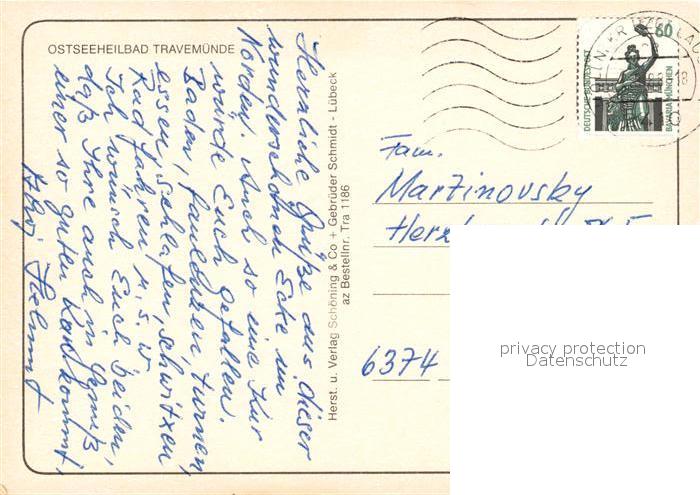 OSTSEEHEILBAD TRAVEMÜNDE
Herzliche Grüße aus dieser
wunderschönen Ecke im
Norden. Auch so eine Kur
würde Euch gefallen.
Baden, faulenzen, turnen,
essen, schlafen, schwitzen
Rad fahren u.s.w
Ich wünsch Euch beiden,
daß Ihre auch in Genuß
einer so guten Kur kommt,
Helmut
Herst. u. Verlag Schöning & Co + Gebrüder Schmidt - Lübeck
az Bestellnr. Tra 1186
60
DEUTSCHE BUNDESPOST
BAVARIA MÜNCHEN
Fam.
Martinovsky
6374
privacy protection
Datenschutz